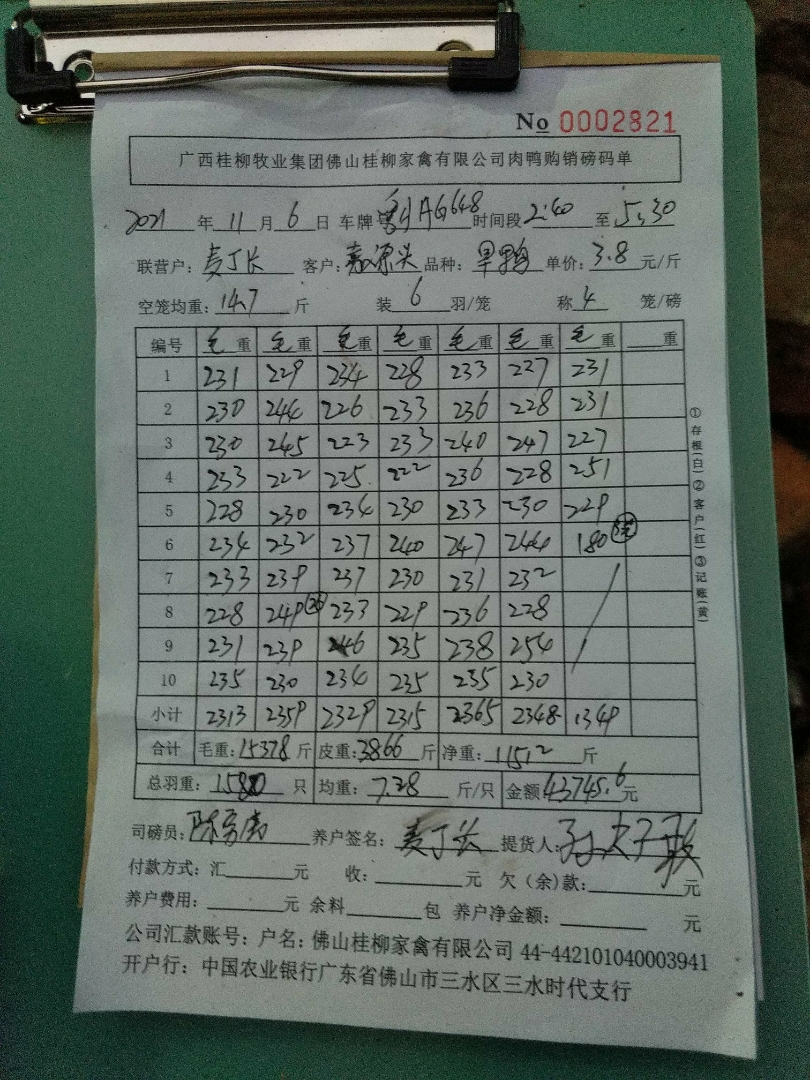 No 0002821
广西桂柳牧业集团佛山桂柳家禽有限公司肉鸭购销磅码单
2021 年 11 月 6 日 车牌 粤AG648 时间段 2:40 至 5:30
联营户: 麦丁长 客户: 源 品种: 旱鸭 单价: 3.8 元/斤
空笼均重: 14.7 斤 装 6 羽/笼 称 4 笼/磅
编号 毛重 毛重 毛重 毛重 毛重 毛重 毛重 重
1 231 229 234 228 233 227 231
2 230 244 226 233 236 228 231
3 230 245 223 233 240 247 227
4 233 222 225 222 236 228 251
5 228 230 234 230 233 230 229
6 234 232 237 240 247 244 180
7 233 239 237 230 231 232
8 228 249 233 229 236 228
9 231 239 246 235 238 254
10 235 230 234 235 235 230
小计 2313 2359 2329 2315 2365 2348 1349
合计 毛重: 15378 斤 皮重: 3866 斤 净重: 11512 斤
总羽重: 1580 只 均重: 7.28 斤/只 金额 43745.6 元
司磅员: 陈 养户签名: 麦丁长 提货人:
付款方式: 汇 元 收: 元 欠(余)款: 元
养户费用: 元 余料 包 养户净金额: 元
公司汇款账号: 户名: 佛山桂柳家禽有限公司 44-442101040003941
开户行: 中国农业银行广东省佛山市三水区三水时代支行
①存根(白)②客户(红)③记账(黄)